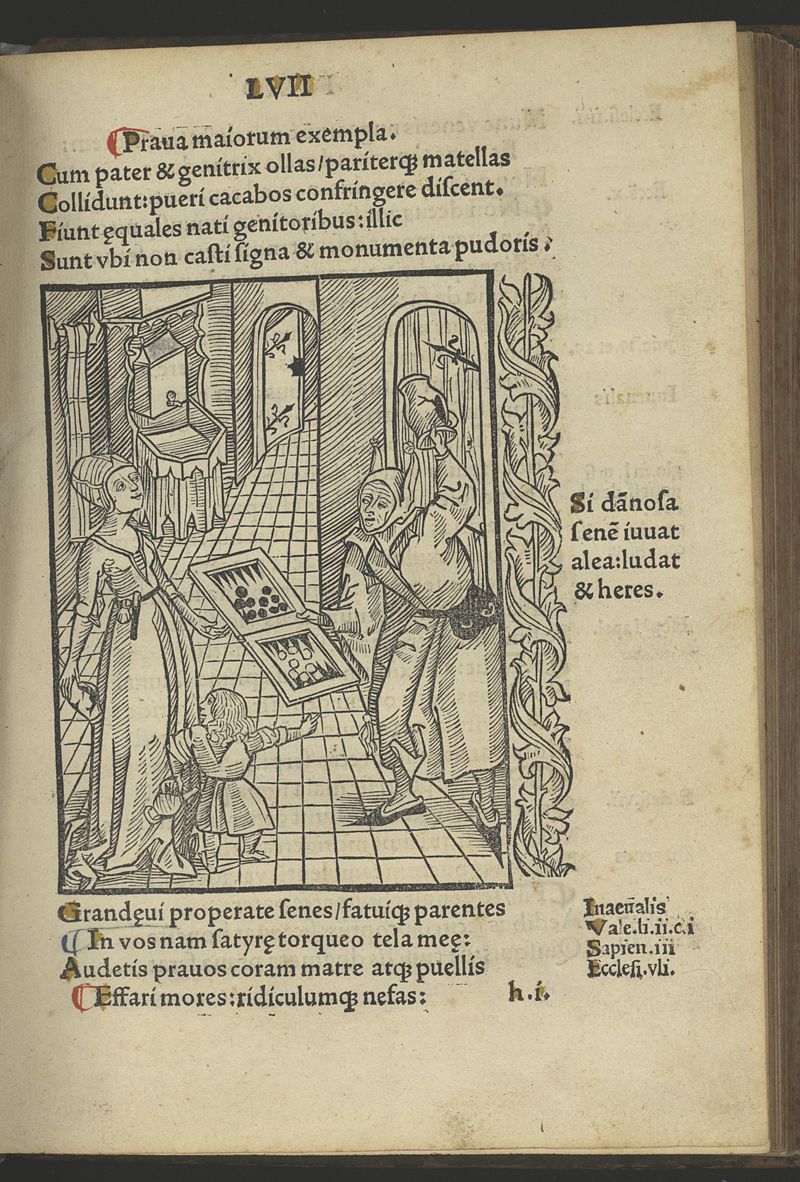 LVII
Praua maiorum exempla.
Cum pater & genitrix ollas/pariterqꝫ matellas
Collidunt:pueri cacabos confringere diſcent.
Fiunt ęquales nati genitoribus:illic
Sunt vbi non caſti ſigna & monumenta pudoris.
Si dānoſa
ſenē iuuat
alea:ludat
& heres.
Grandęui properate ſenes/fatuiqꝫ parentes
In vos nam ſatyrę torqueo tela meę:
Audetis prauos coram matre atqꝫ puellis
Effari mores:ridiculumqꝫ nefas:
h.i.
Iuuenalis
Vale.li.ii.c.i
Sapien.iii
Eccleſi.vli.